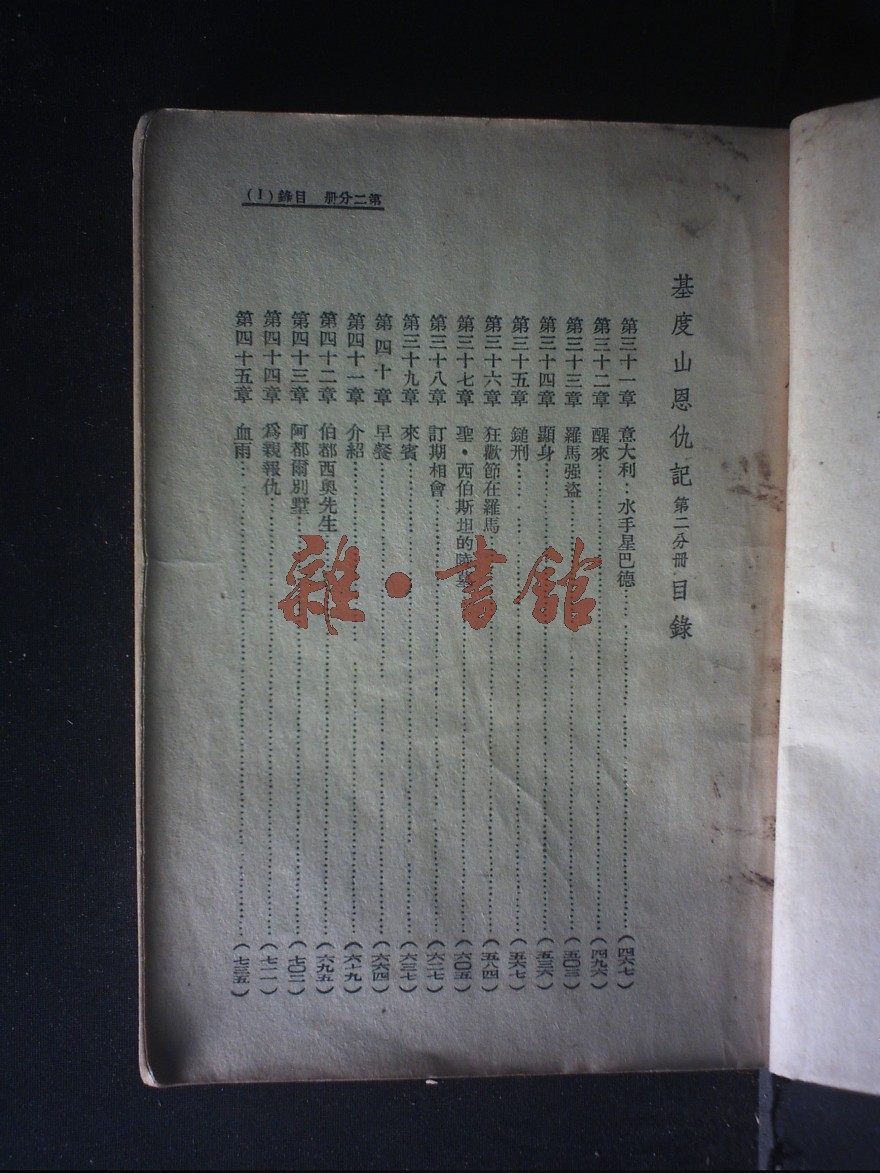 第二分册 目錄(1)
基度山恩仇記 第二分冊 目錄
第三十一章 意大利：水手星巴德……(四六七)
第三十二章 醒來……(四九六)
第三十三章 羅馬强盜……(五〇三)
第三十四章 顯身……(五三六)
第三十五章 鎚刑……(五六七)
第三十六章 狂歡節在羅馬……(五八四)
第三十七章 聖·西伯斯坦的陵墓……(六〇五)
第三十八章 訂期相會……(六二七)
第三十九章 來賓……(六三七)
第四十章 早餐……(六六四)
第四十一章 介紹……(六七九)
第四十二章 伯都西奧先生……(六九五)
第四十三章 阿都爾別墅……(七〇二)
第四十四章 爲親報仇……(七一一)
第四十五章 血雨……(七三五)
雜·書館